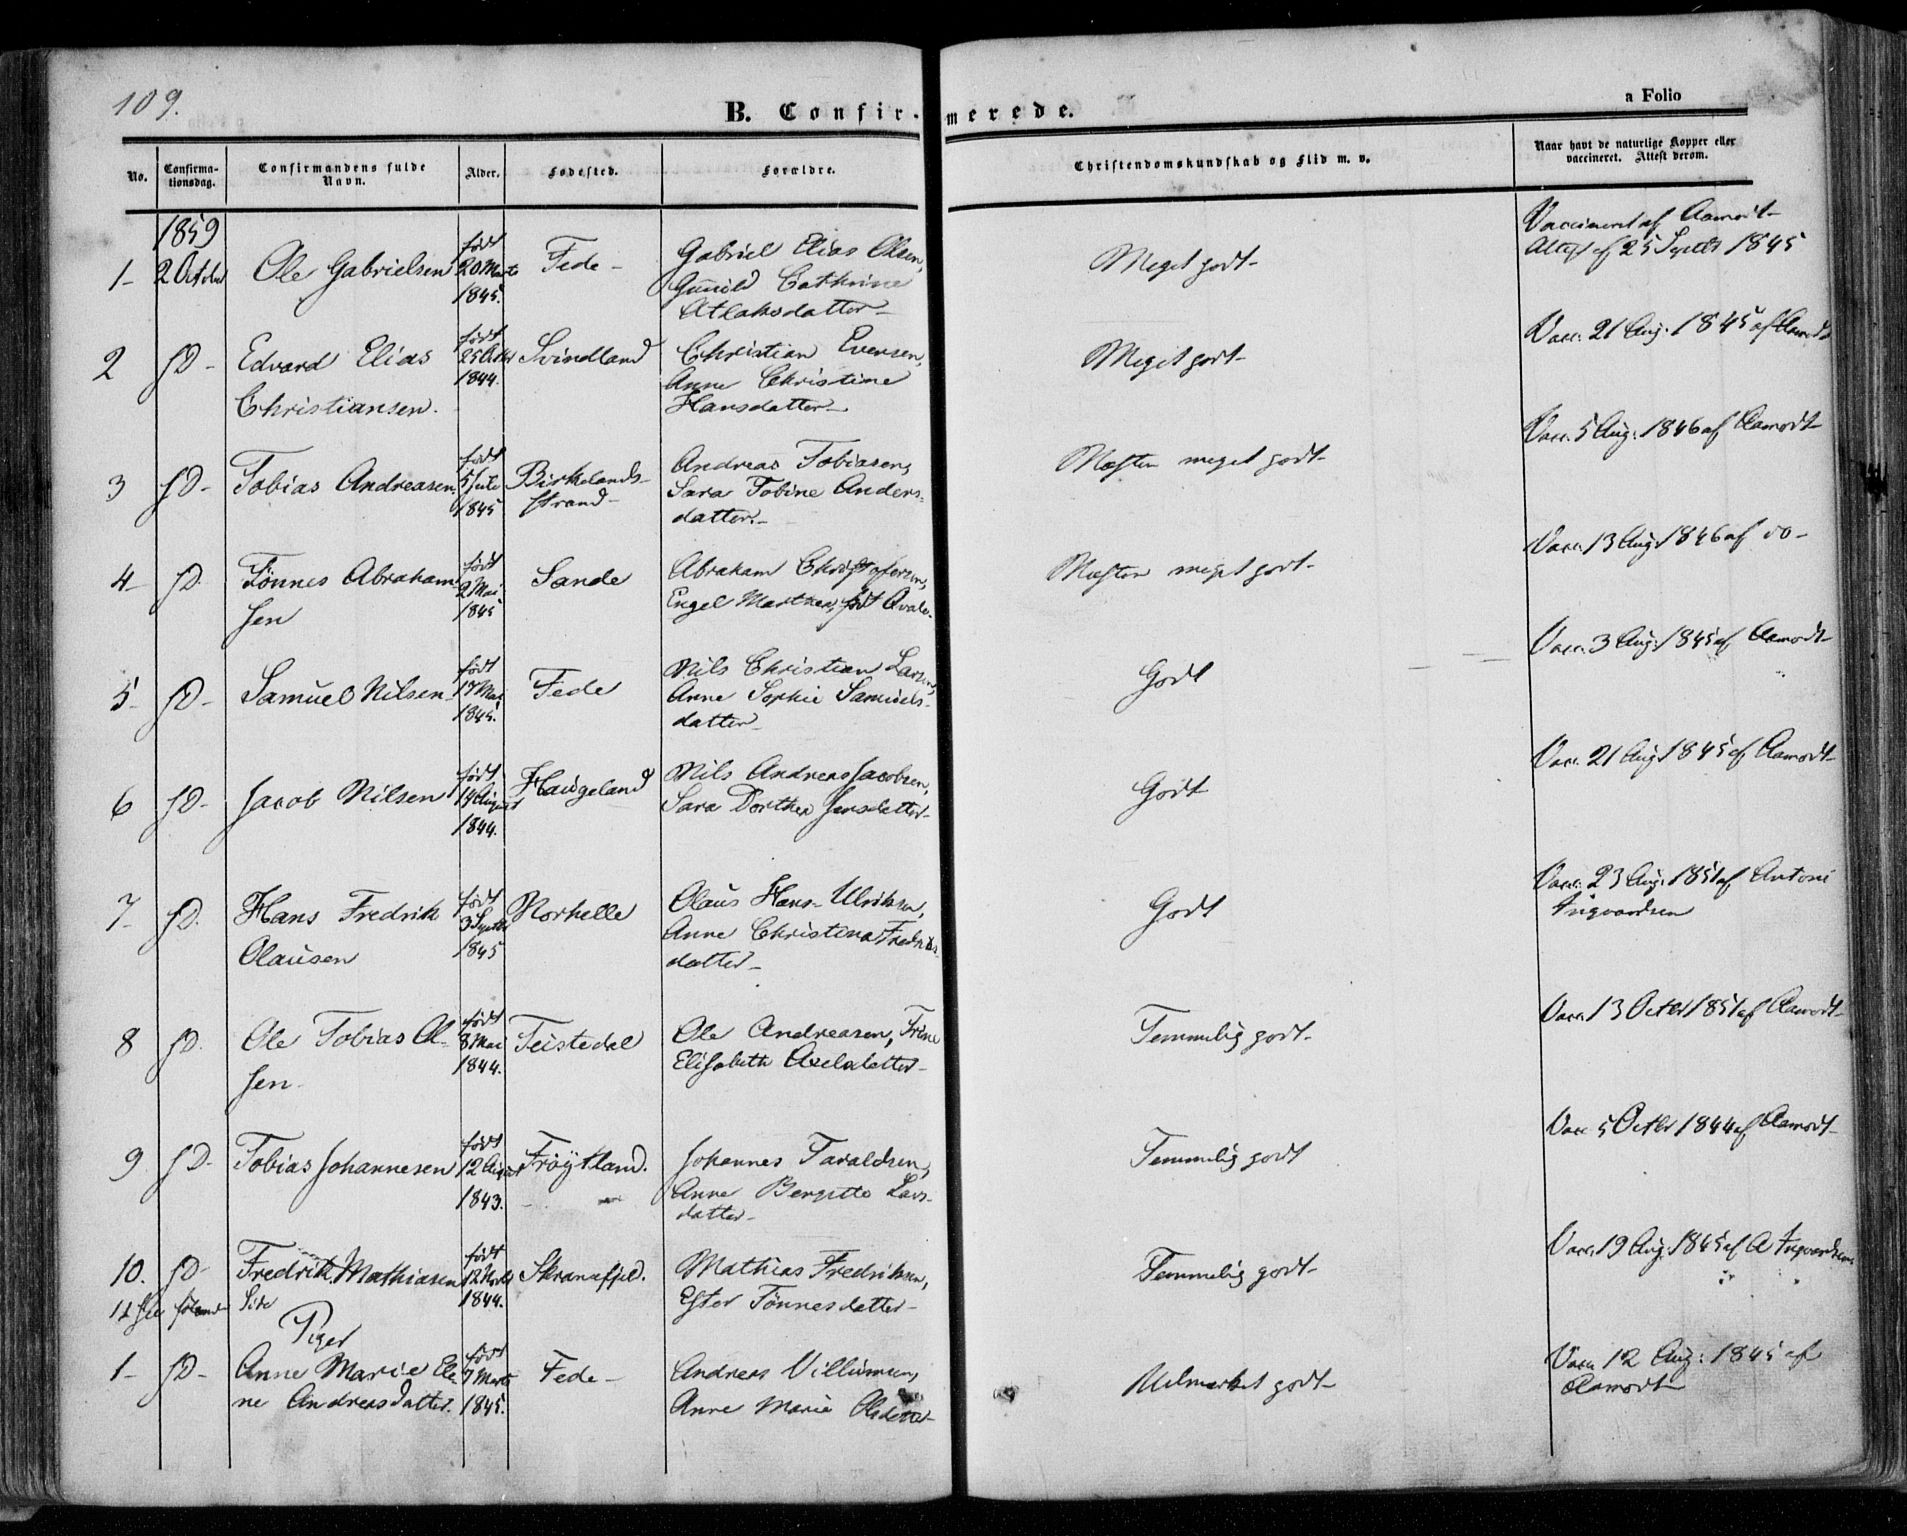 109.
B. Confir-merede.
a Folio
No.
Confirma-
tionsdag.
Confirmandens fulde
Navn.
Alder.
Fødested.
Forældre.
Christendomskundskab og Flid m. v.
Naar havt de naturlige Kopper eller
vaccineret. Attest derom.
1859
1- 2 October Ole Gabrielsen født 20 Marts 1845. Fede- Gabriel Elias Olsen, Gunild Cathrine Atlaksdatter- Meget godt- Vaccineret af Aamodt- Attest af 25 Septbr 1845
2 D- Edvard Elias Christiansen. født 25 1844. Svindland Christian Evensen, Anne Christine Hansdatter- Meget godt- Vacc. 21 Aug. 1845 af Aamodt
3 D- Tobias Andreasen. født 5 Juli 1845 Birkelands-strand- Andreas Tobiasen, Sara Tobine Anders-datter.- Næsten meget godt- Vacc. 5 Aug: 1846 af Aamodt-
4- D. Tönnes Abraham sen født 2 Mai 1845 Sande Abraham Christofersen, Engel Marthea, født Qvale. Næsten meget godt- Vacc. 13 Aug: 1846 af do-
5- D- Samuel Nilsen- født 17 Mai 1845. Fede Nils Christian Larsen, Anne Sophie Samuels-datter- Godt Vacc. 3 Aug: 1845 af Aamodt-
6 D- Jacob Nilsen født 14 August 1844. Haugeland Nils Andreas Jacobsen, Sara Dorthea Jensdatter- Godt Vacc. 21 Aug 1845 af Aamodt-
7- D. Hans Fredrik Olausen født 3 Septbr 1845 Norhelle Olaus Hans- Ulriksen, Anne Christina Fredriks datter- Godt Vacc. 23 Aug: 1851 af Antoni Ingvardsen
8 D. Ole Tobias Ol-sen- født 8 Mai 1844. Teistedal Ole Andreasen, Trine Elisabeth Axelsdatter- Temmelig godt- Vacc. 13 Octbr 1851 af Aamodt-
9 D- Tobias Johannesen født 12 August 1843. Fröÿtland. Johannes Taraldsen, Anne Bergitte Lars-datter- Temmelig godt Vacc 5 Octbr 1844 af Aamodt-
10. D- Fredrik Mathiasen født 12 1844. Skranefjeld. Mathias Fredriksen, Ester Tönnesdatter- Temmelig godt- Vacc. 19 Aug: 1845 af A Ingvardsen
Side
Piger
1- D- Anne Marie Ele-ne Andreasdatter. født 7 Marts 1845. Fede- Andreas Villumsen, Anne Marie Olsdatter- Udmærket godt- Vacc. 12 Aug: 1845 af Aamodt-